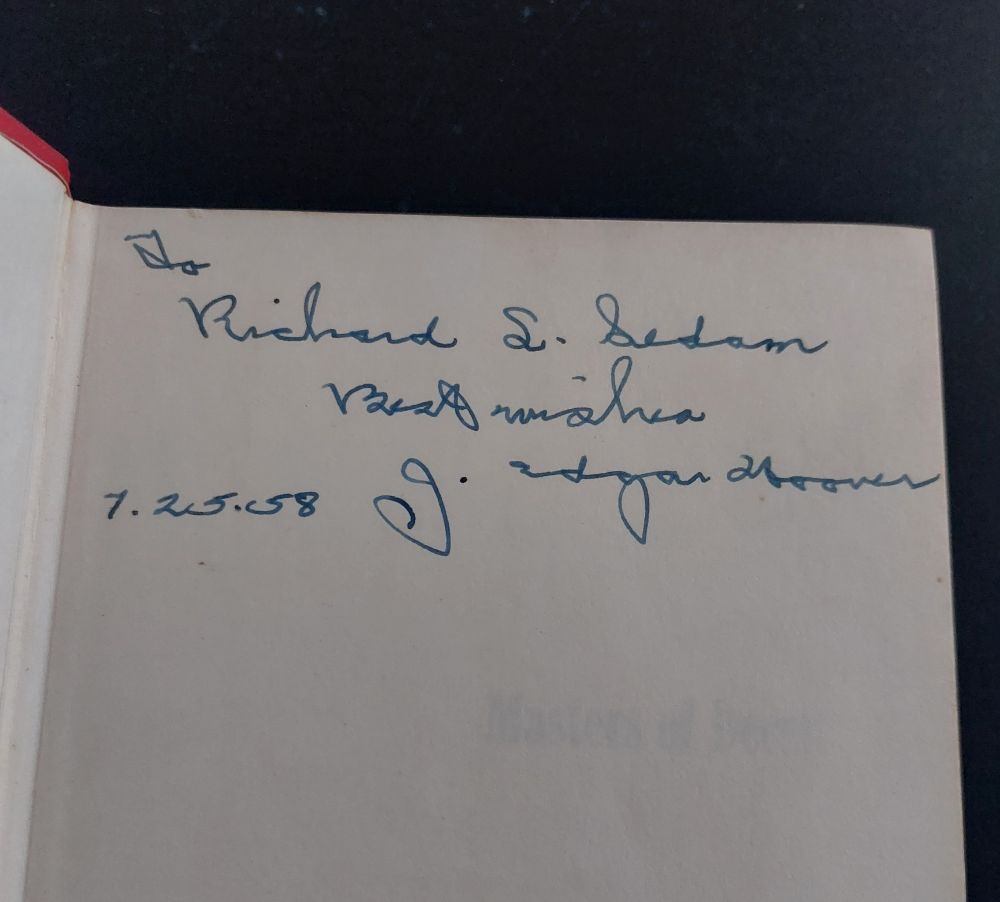 To
Richard L. Sedam
Best wishes
J. Edgar Hoover
7.25.58
Masters of Deceit